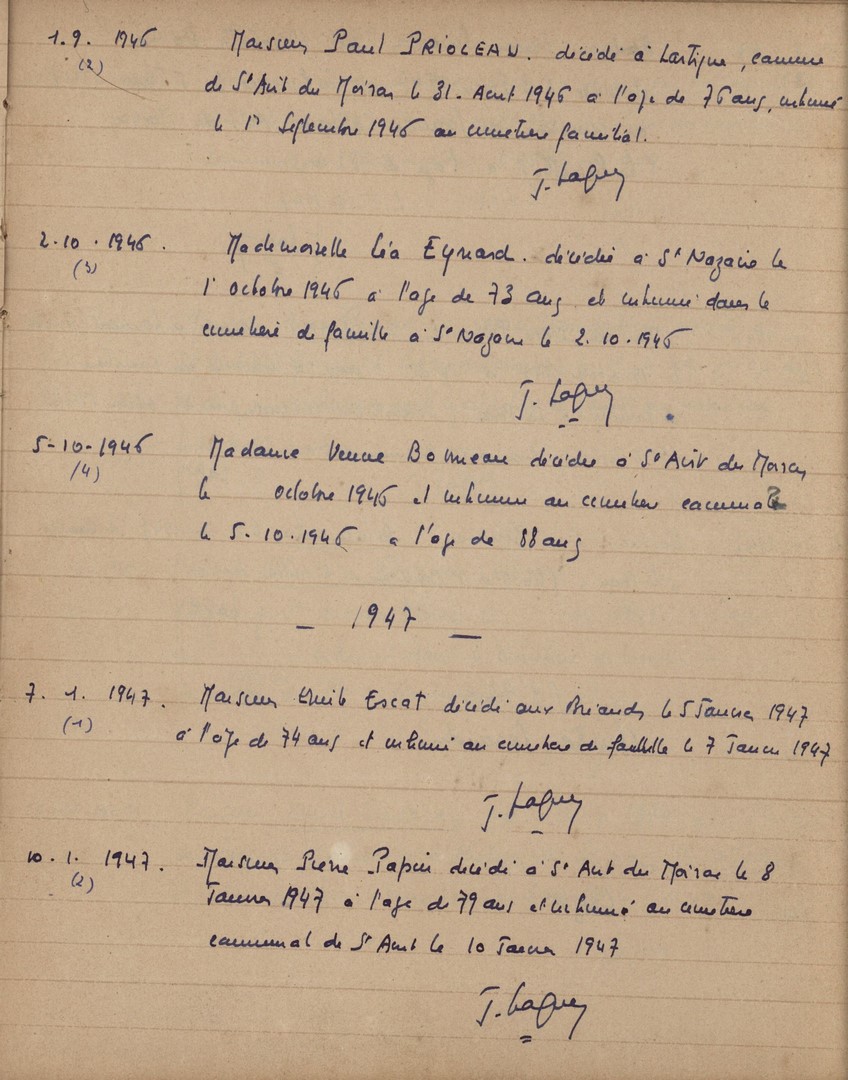 1.9. 1946 Monsieur Paul PRIOLEAU. décédé à Lartigue, commune
(2) de St Avit du Moiron le 31. Aout 1946 à l'age de 76 ans, inhumé
le 1er Septembre 1946 au cimetière familial.
J. Laguy
2.10.1946. Mademoiselle Léa Eynard. décédée à St Nazaire le
(3) 1er octobre 1946 à l'age de 73 ans et inhumé dans le
cimetière de famille à St Nazaire le 2.10.1946
J. Laguy
5-10-1946 Madame Veuve Bonneau décédée à St Avit du Moiron
(4) le octobre 1946 et inhumée au cimetière communal
le 5.10.1946 a l'age de 88 ans
_ 1947 _
7. 1. 1947. Monsieur Emile Escat décédé aux Briands le 5 Janvier 1947
(1) à l'age de 74 ans et inhumé au cimetière de famille le 7 Janvier 1947
J. Laguy
10. 1. 1947. Monsieur Pierre Papin décédé à St Avit du Moiron le 8
(2) Janvier 1947 à l'age de 79 ans et inhumé au cimetière
communal de St Avit le 10 Janvier 1947
J. Laguy